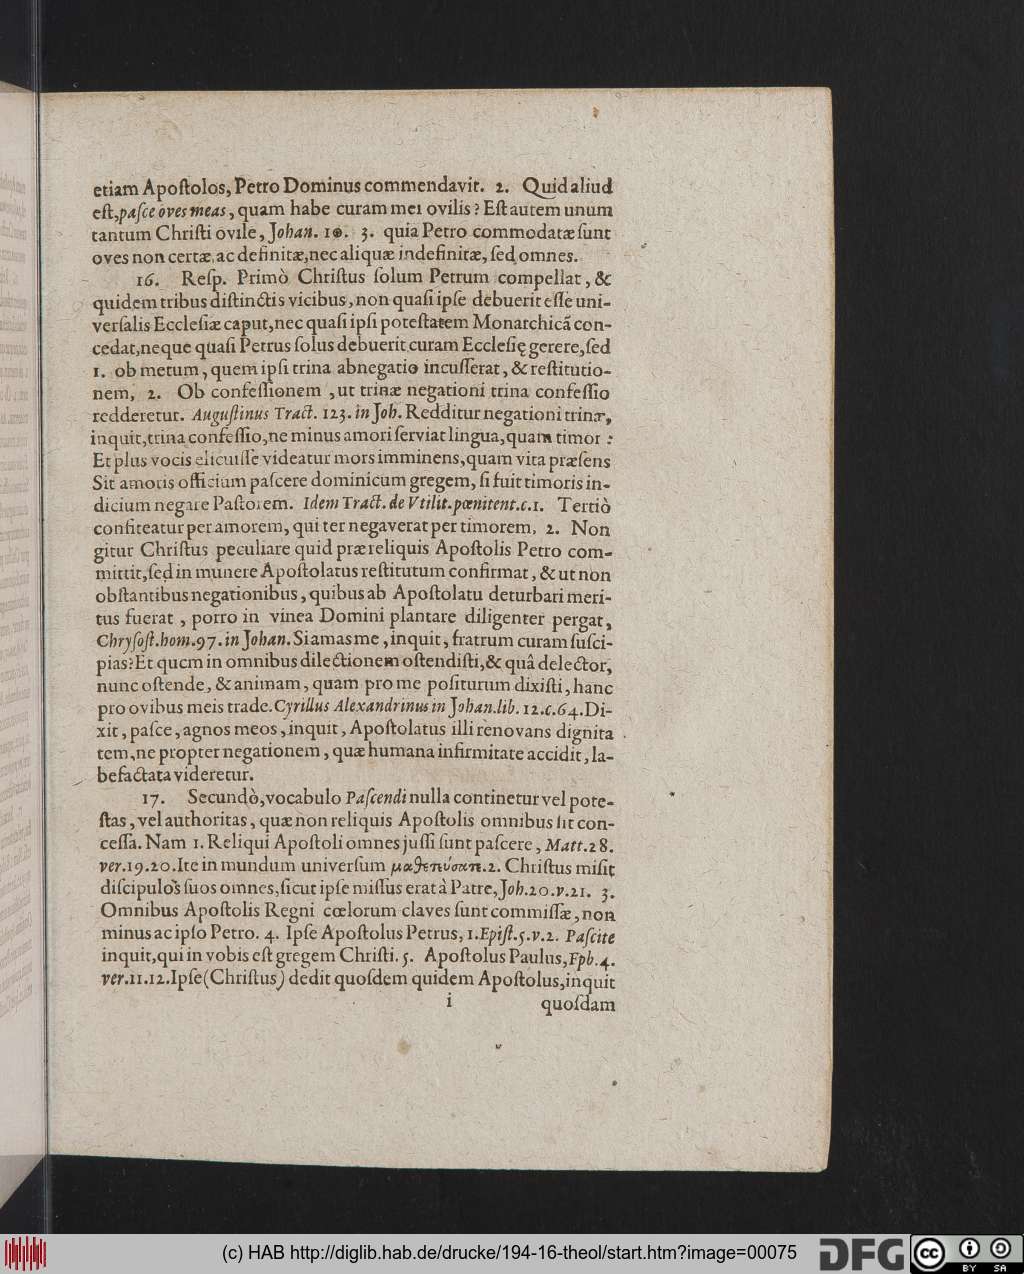 etiam Apoſtolos, Petro Dominus commendavit. 2. Quid aliud
eſt, paſce oves meas, quam habe curam mei ovilis? Eſt autem unum
tantum Chriſti ovile, Johan. 10. 3. quia Petro commodatæ ſunt
oves non certæ, ac definitæ, nec aliquæ indefinitæ, ſed omnes.
16. Reſp. Primò Chriſtus ſolum Petrum compellat, &
quidem tribus diſtinctis vicibus, non quaſi ipſe debuerit eſſe uni-
verſalis Eccleſiæ caput, nec quaſi ipſi poteſtatem Monarchicã con-
cedat, neque quaſi Petrus ſolus debuerit curam Eccleſię gerere, ſed
1. ob metum, quem ipſi trina abnegatio incuſſerat, & reſtitutio-
nem, 2. Ob confeſſionem, ut trinæ negationi trina confeſſio
redderetur. Auguſtinus Tract. 123. in Joh. Redditur negationi trinæ,
inquit, trina confeſſio, ne minus amori ſerviat lingua, quam timor:
Et plus vocis elicuiſſe videatur mors imminens, quam vita præſens
Sit amoris officium paſcere dominicum gregem, ſi fuit timoris in-
dicium negare Paſtorem. Idem Tract. de Vtilit. pœnitent. c. 1. Tertiò
confiteatur per amorem, qui ter negaverat per timorem, 2. Non
gitur Chriſtus peculiare quid præ reliquis Apoſtolis Petro com-
mittit, ſed in munere Apoſtolatus reſtitutum confirmat, & ut non
obſtantibus negationibus, quibus ab Apoſtolatu deturbari meri-
tus fuerat, porro in vinea Domini plantare diligenter pergat,
Chryſoſt. hom. 97. in Johan. Si amas me, inquit, fratrum curam ſuſci-
pias: Et quem in omnibus dilectionem oſtendiſti, & quâ delector,
nunc oſtende, & animam, quam pro me poſiturum dixiſti, hanc
pro ovibus meis trade. Cyrillus Alexandrinus in Johan. lib. 12. c. 64. Di-
xit, paſce, agnos meos, inquit, Apoſtolatus illi renovans dignita
tem, ne propter negationem, quæ humana infirmitate accidit, la-
befactata videretur.
17. Secundò, vocabulo Paſcendi nulla continetur vel pote-
ſtas, vel authoritas, quæ non reliquis Apoſtolis omnibus ſit con-
ceſſa. Nam 1. Reliqui Apoſtoli omnes juſſi ſunt paſcere, Matt. 28.
ver. 19. 20. Ite in mundum univerſum μαθετεύσατε. 2. Chriſtus miſit
diſcipulos ſuos omnes, ſicut ipſe miſſus erat à Patre, Joh. 20. v. 21. 3.
Omnibus Apoſtolis Regni cœlorum claves ſunt commiſſæ, non
minus ac ipſo Petro. 4. Ipſe Apoſtolus Petrus, 1. Epiſt. 5. v. 2. Paſcite
inquit, qui in vobis eſt gregem Chriſti. 5. Apoſtolus Paulus, Eph. 4.
ver. 11. 12. Ipſe (Chriſtus) dedit quoſdem quidem Apoſtolus, inquit
i quoſdam
(c) HAB http://diglib.hab.de/drucke/194-16-theol/start.htm?image=00075
DFG
cc BY SA